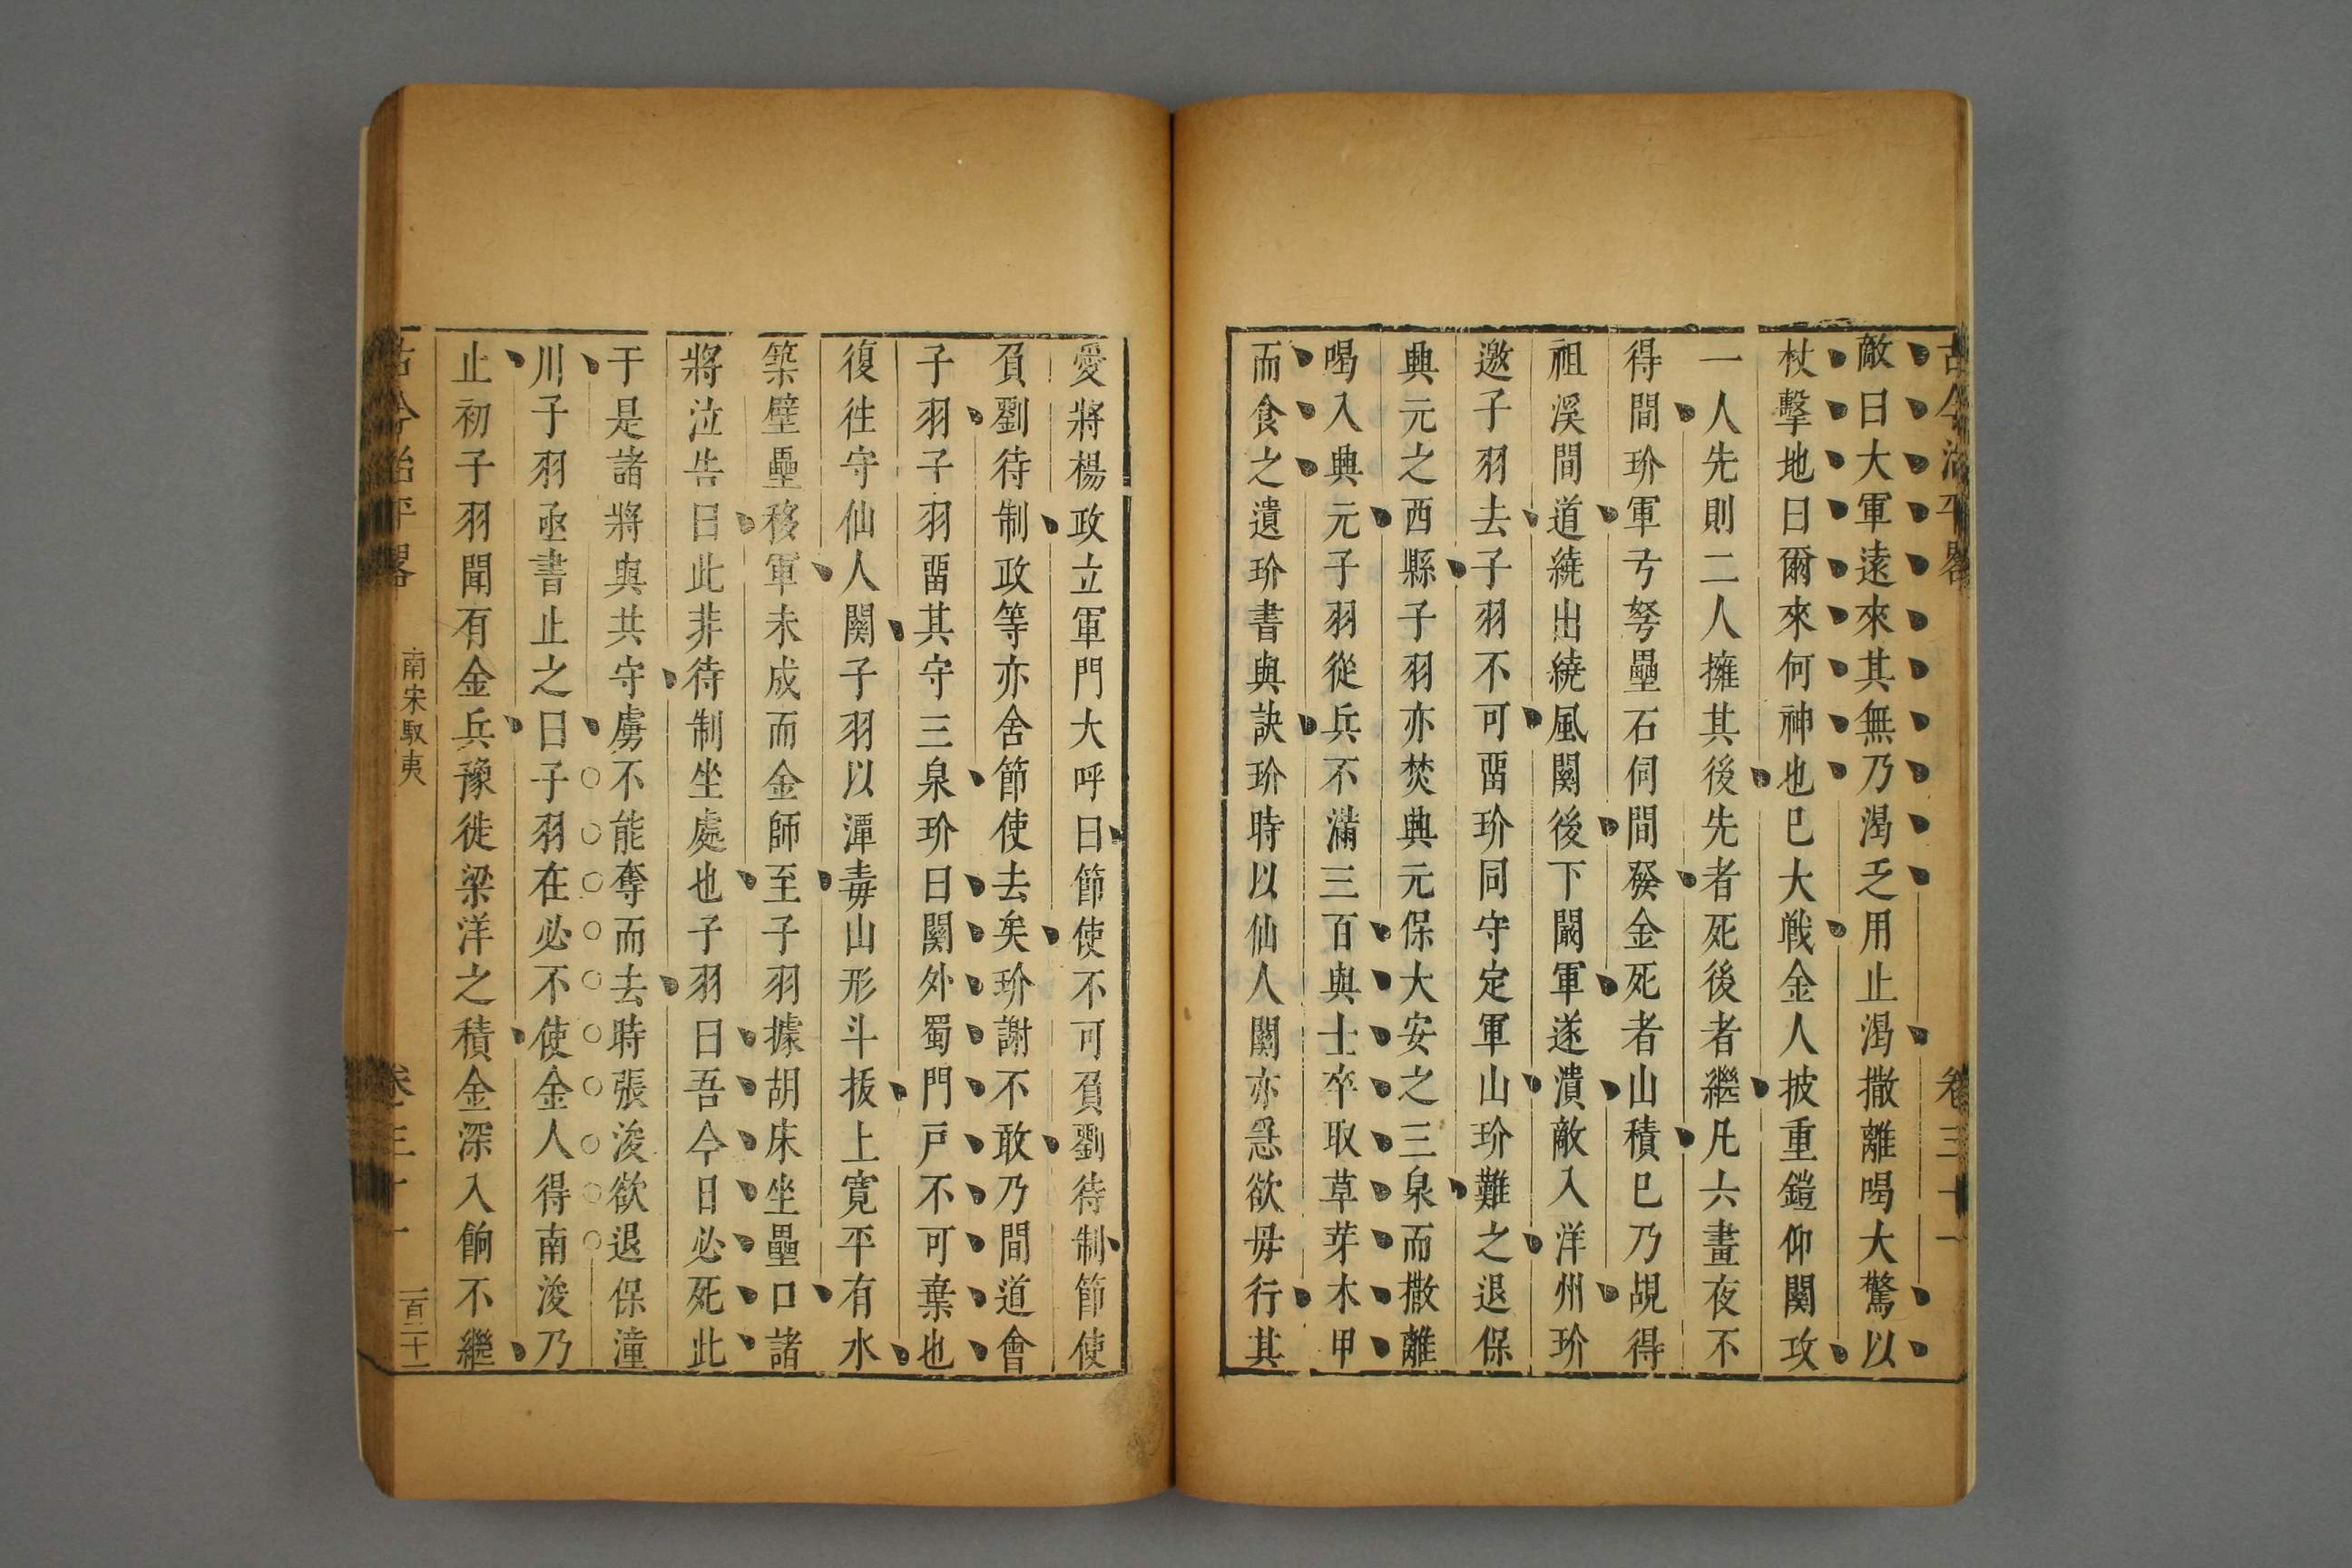 古今治平畧 卷三十一
敵曰大軍遠來其無乃渴乏用止渴撒離喝大驚以
杖擊地曰爾來何神也巳大戰金人披重鎧仰關攻
一人先則二人擁其後先者死後者繼凡六晝夜不
得間玠軍亏弩壘石伺間發金死者山積巳乃覘得
祖溪間道繞出繞風關後下闞軍遂潰敵入洋州玠
邀子羽去子羽不可畱玠同守定軍山玠難之退保
興元之西縣子羽亦焚興元保大安之三泉而撒離
喝入興元子羽從兵不滿三百與士卒取草芽木甲
而食之遺玠書與訣玠時以仙人關亦悬欲毋行其
愛將楊政立軍門大呼曰節使不可負劉待制節使
負劉待制政等亦舍節使去矣玠謝不敢乃間道會
子羽子羽畱其守三泉玠曰關外蜀門戸不可棄也
復徃守仙人關子羽以潭毒山形斗拔上寬平有水
築壁壘移軍未成而金師至子羽據胡床坐壘口諸
將泣告曰此非待制坐處也子羽曰吾今日必死此
于是諸將與共守虜不能奪而去時張浚欲退保潼
川子羽亟書止之曰子羽在必不使金人得南浚乃
止初子羽聞有金兵豫徙梁洋之積金深入餉不繼
古今治平畧 南宋馭夷 卷三十一 一百二十二